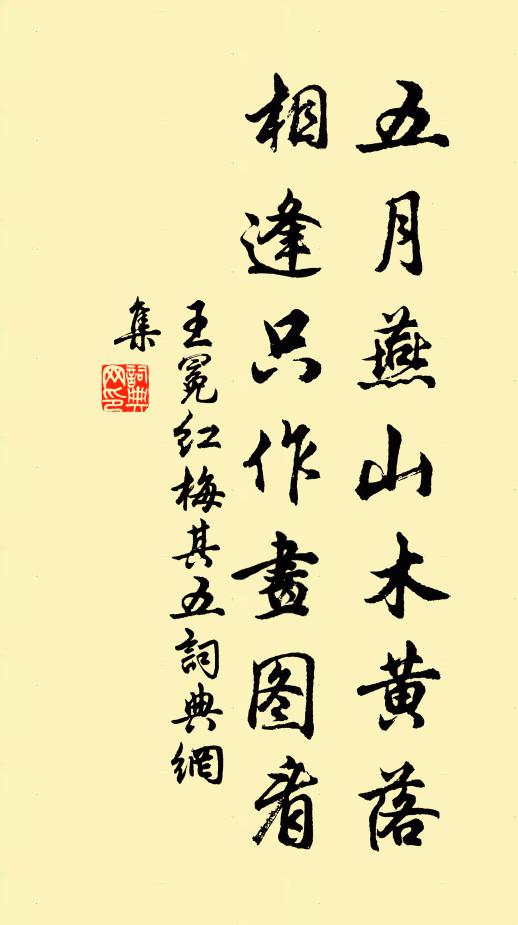 五月燕山木黄落
相逢只作畫图看
王冕红梅其五詞典網
集
詞典网印